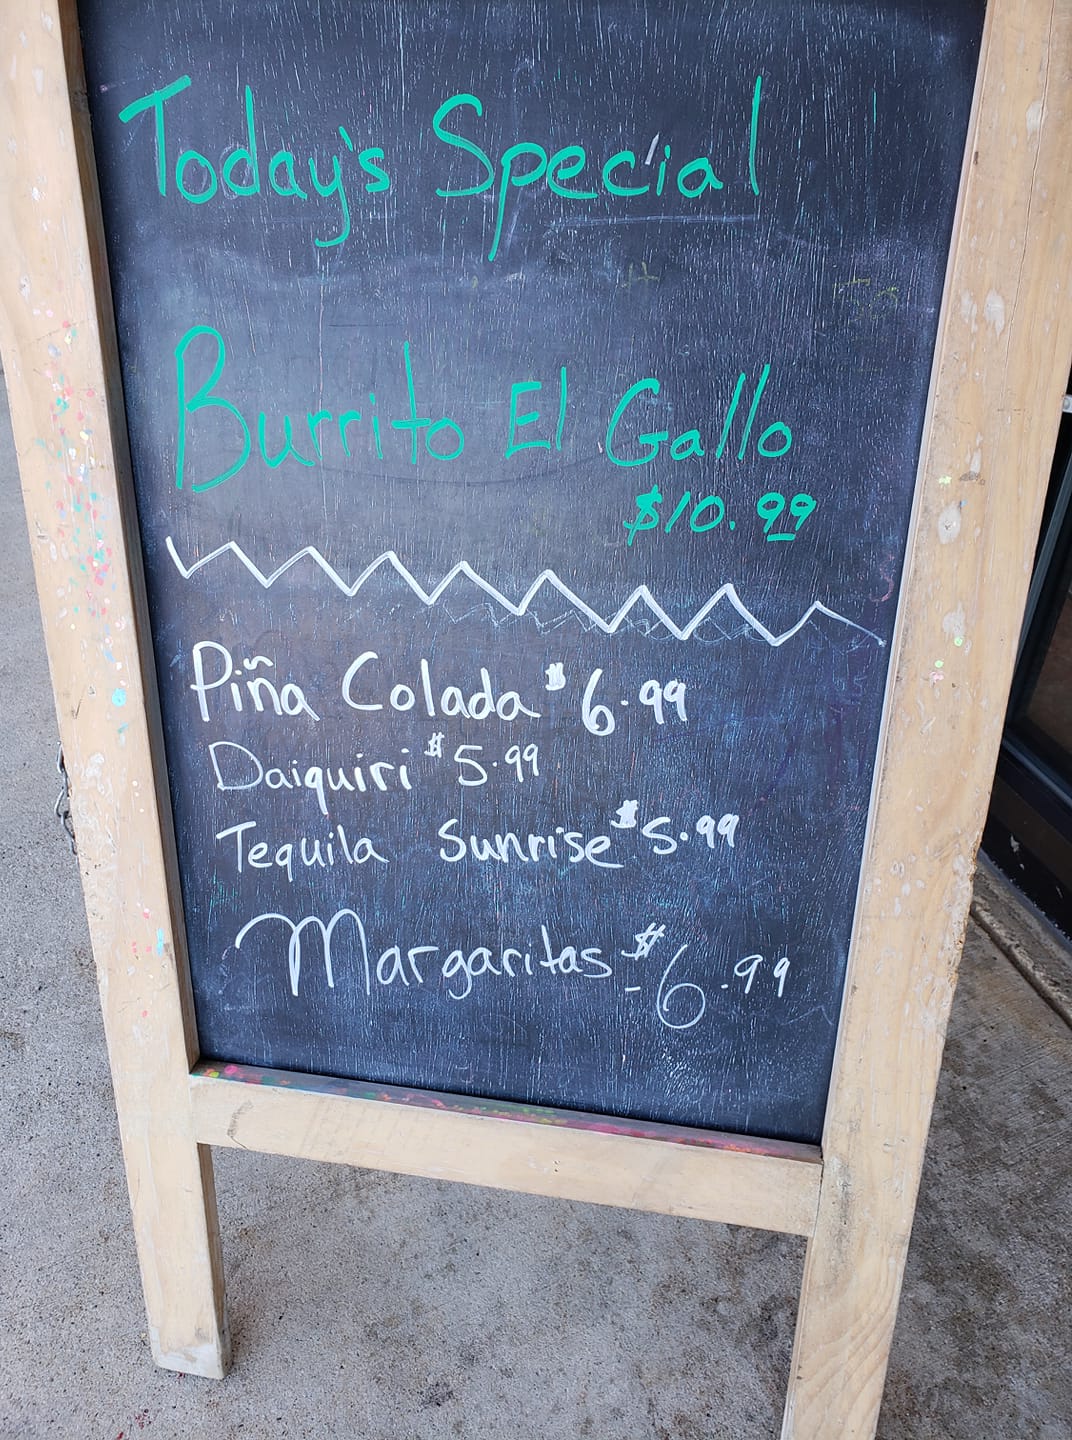 Today's Special
Burrito El Gallo
$10.99
Piña Colada $6.99
Daiquiri $5.99
Tequila Sunrise $5.99
Margaritas - $6.99